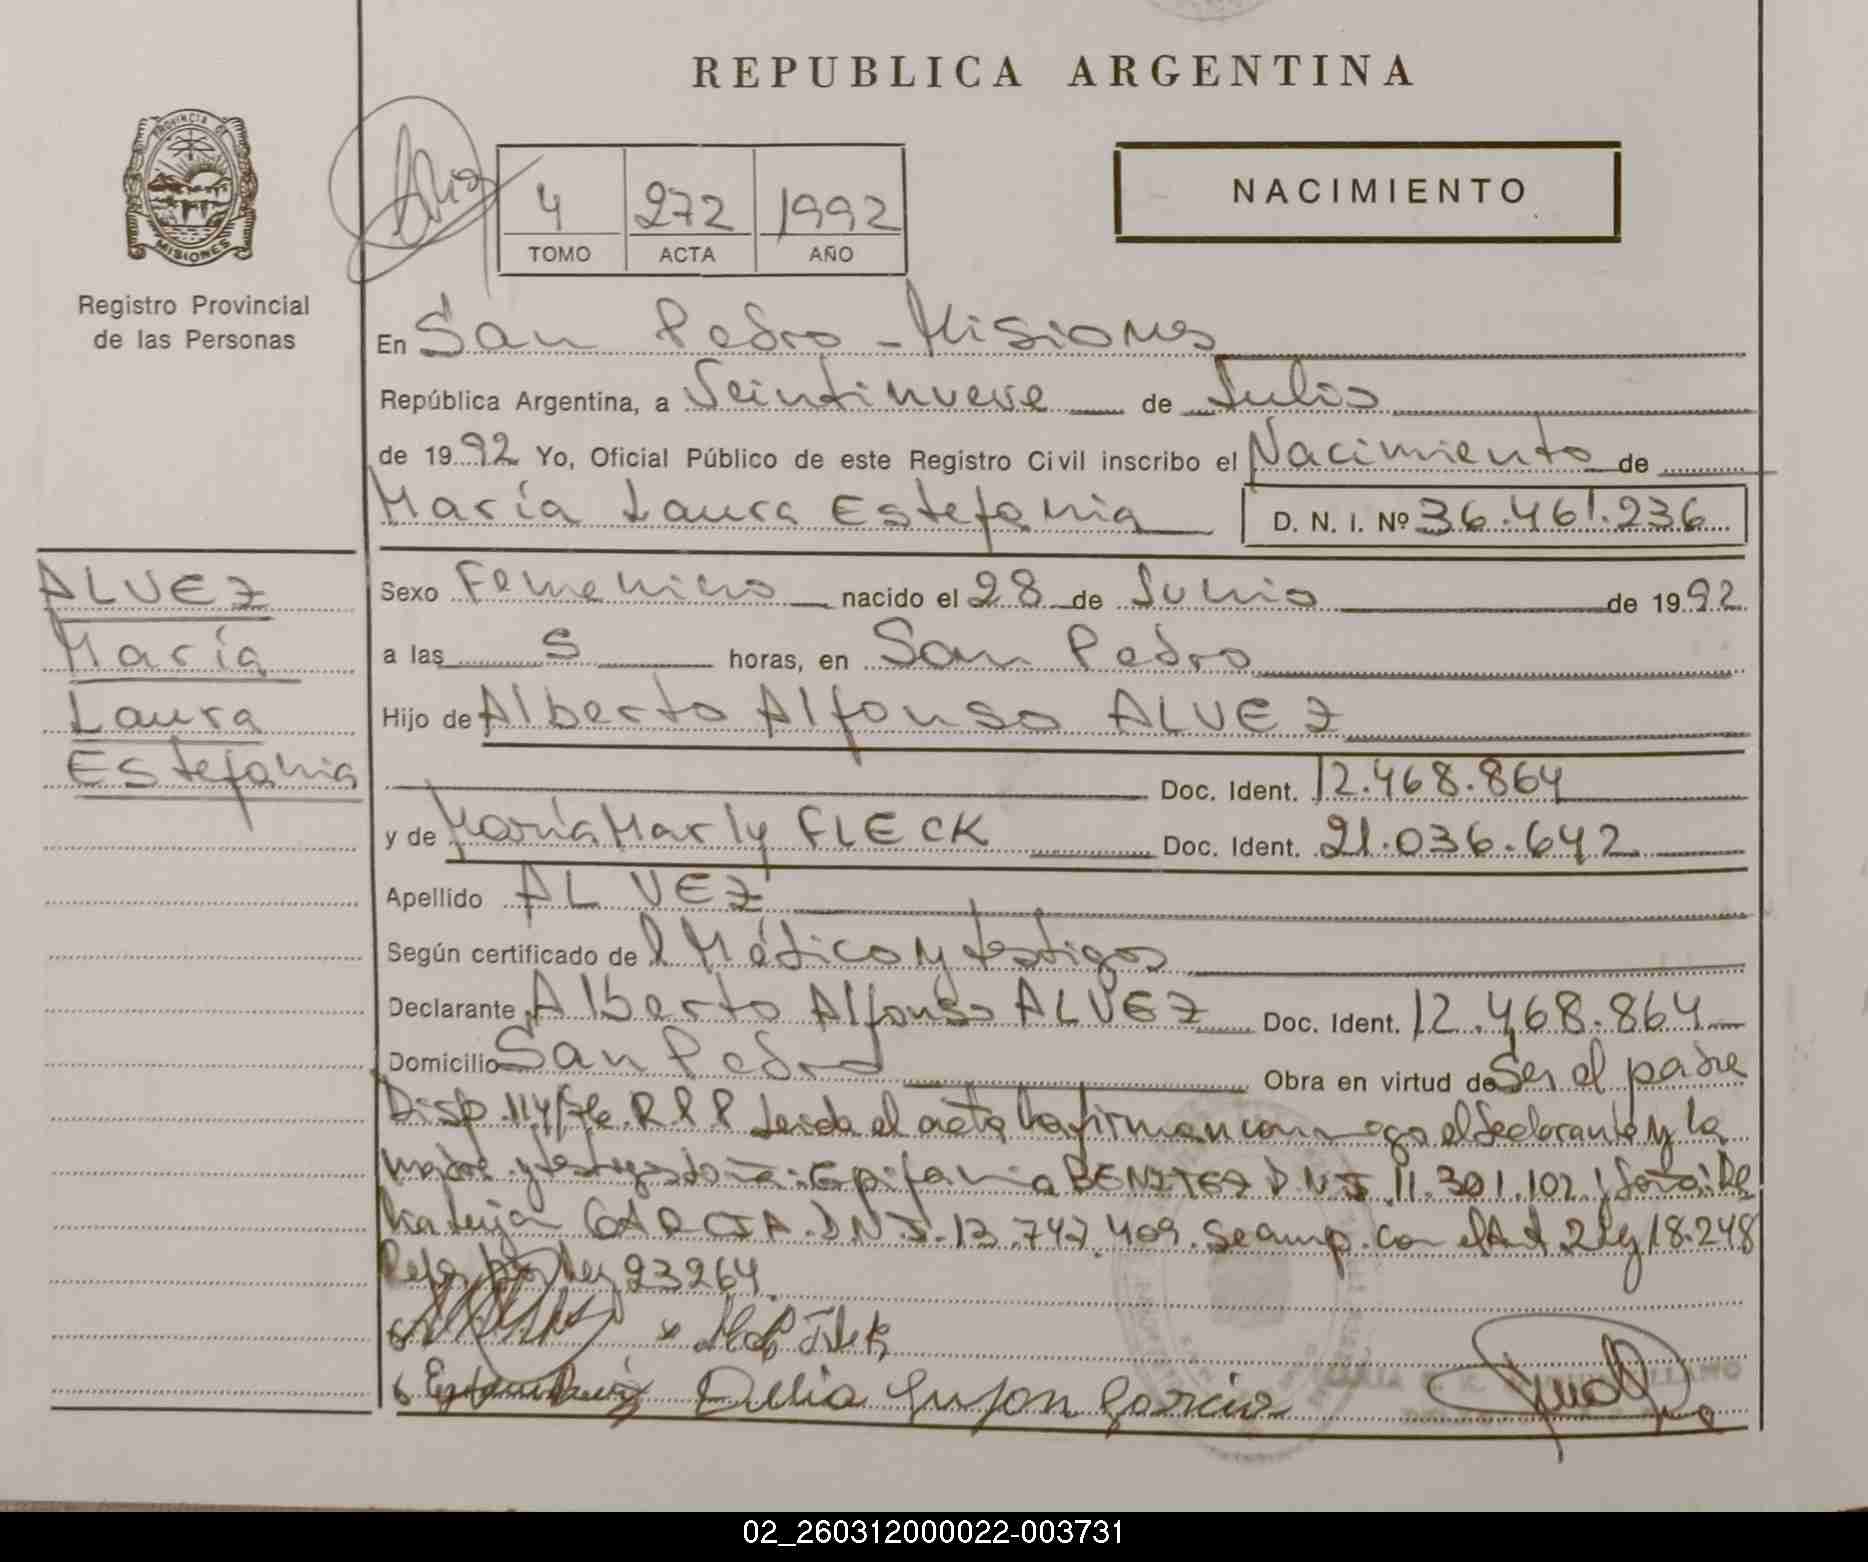 REPUBLICA ARGENTINA
PROVINCIA DE MISIONES
Registro Provincial
de las Personas
4 272 1992
TOMO ACTA AÑO
NACIMIENTO
En San Pedro - Misiones
República Argentina, a Veintinueve de Julio
de 1992 Yo, Oficial Público de este Registro Civil inscribo el Nacimiento de
María Laura Estefania D. N. I. Nº 36.461.236
ALVEZ
María
Laura
Estefania
Sexo Femenino nacido el 28 de Junio de 1992
a las 5 horas, en San Pedro
Hijo de Alberto Alfonso ALVEZ
Doc. Ident. 12.468.864
y de María Marly FLECK Doc. Ident. 21.036.642
Apellido ALVEZ
Según certificado del Médico y testigos
Declarante Alberto Alfonso ALVEZ Doc. Ident. 12.468.864
Domicilio San Pedro Obra en virtud de Ser el padre
Disp. 114/ R.P.P. Leida el acta la firman conmigo el declarante y la
madre y testigos doña: Epifania BENITEZ D.N.I. 11.301.102 y doña: De
lia Lujan GARCIA. D.N.I. 13.747.409. Se cump. con el Art 2 Ley 18.248
Ley 23264.
Delia Lujan Garcia
02_260312000022-003731